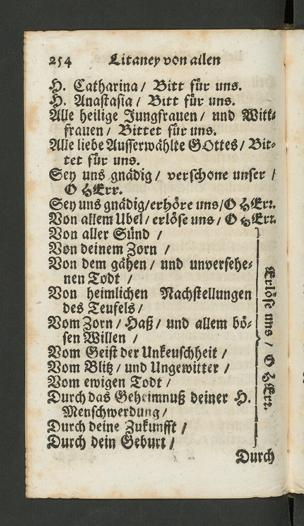 254 Litaney von allen
H. Catharina / Bitt für uns.
H. Anastasia / Bitt für uns.
Alle heilige Jungfrauen / und Witt-
frauen / Bittet für uns.
Alle liebe Ausserwählte GOttes / Bit-
tet für uns.
Sey uns gnädig / verschone unser /
O HErr.
Sey uns gnädig / erhöre uns / O HErr.
Von allem Ubel / erlöse uns / O HErr.
Von aller Sünd /
Von deinem Zorn /
Von dem gähen / und unversehe-
nen Todt /
Von heimlichen Nachstellungen
des Teufels /
Vom Zorn / Haß / und allem bö-
sen Willen /
Vom Geist der Unkeuschheit /
Vom Blitz / und Ungewitter /
Vom ewigen Todt /
Durch das Geheimnuß deiner H.
Menschwerdung /
Durch deine Zukunfft /
Durch dein Geburt /
Erlöse uns / O HErr.
Durch